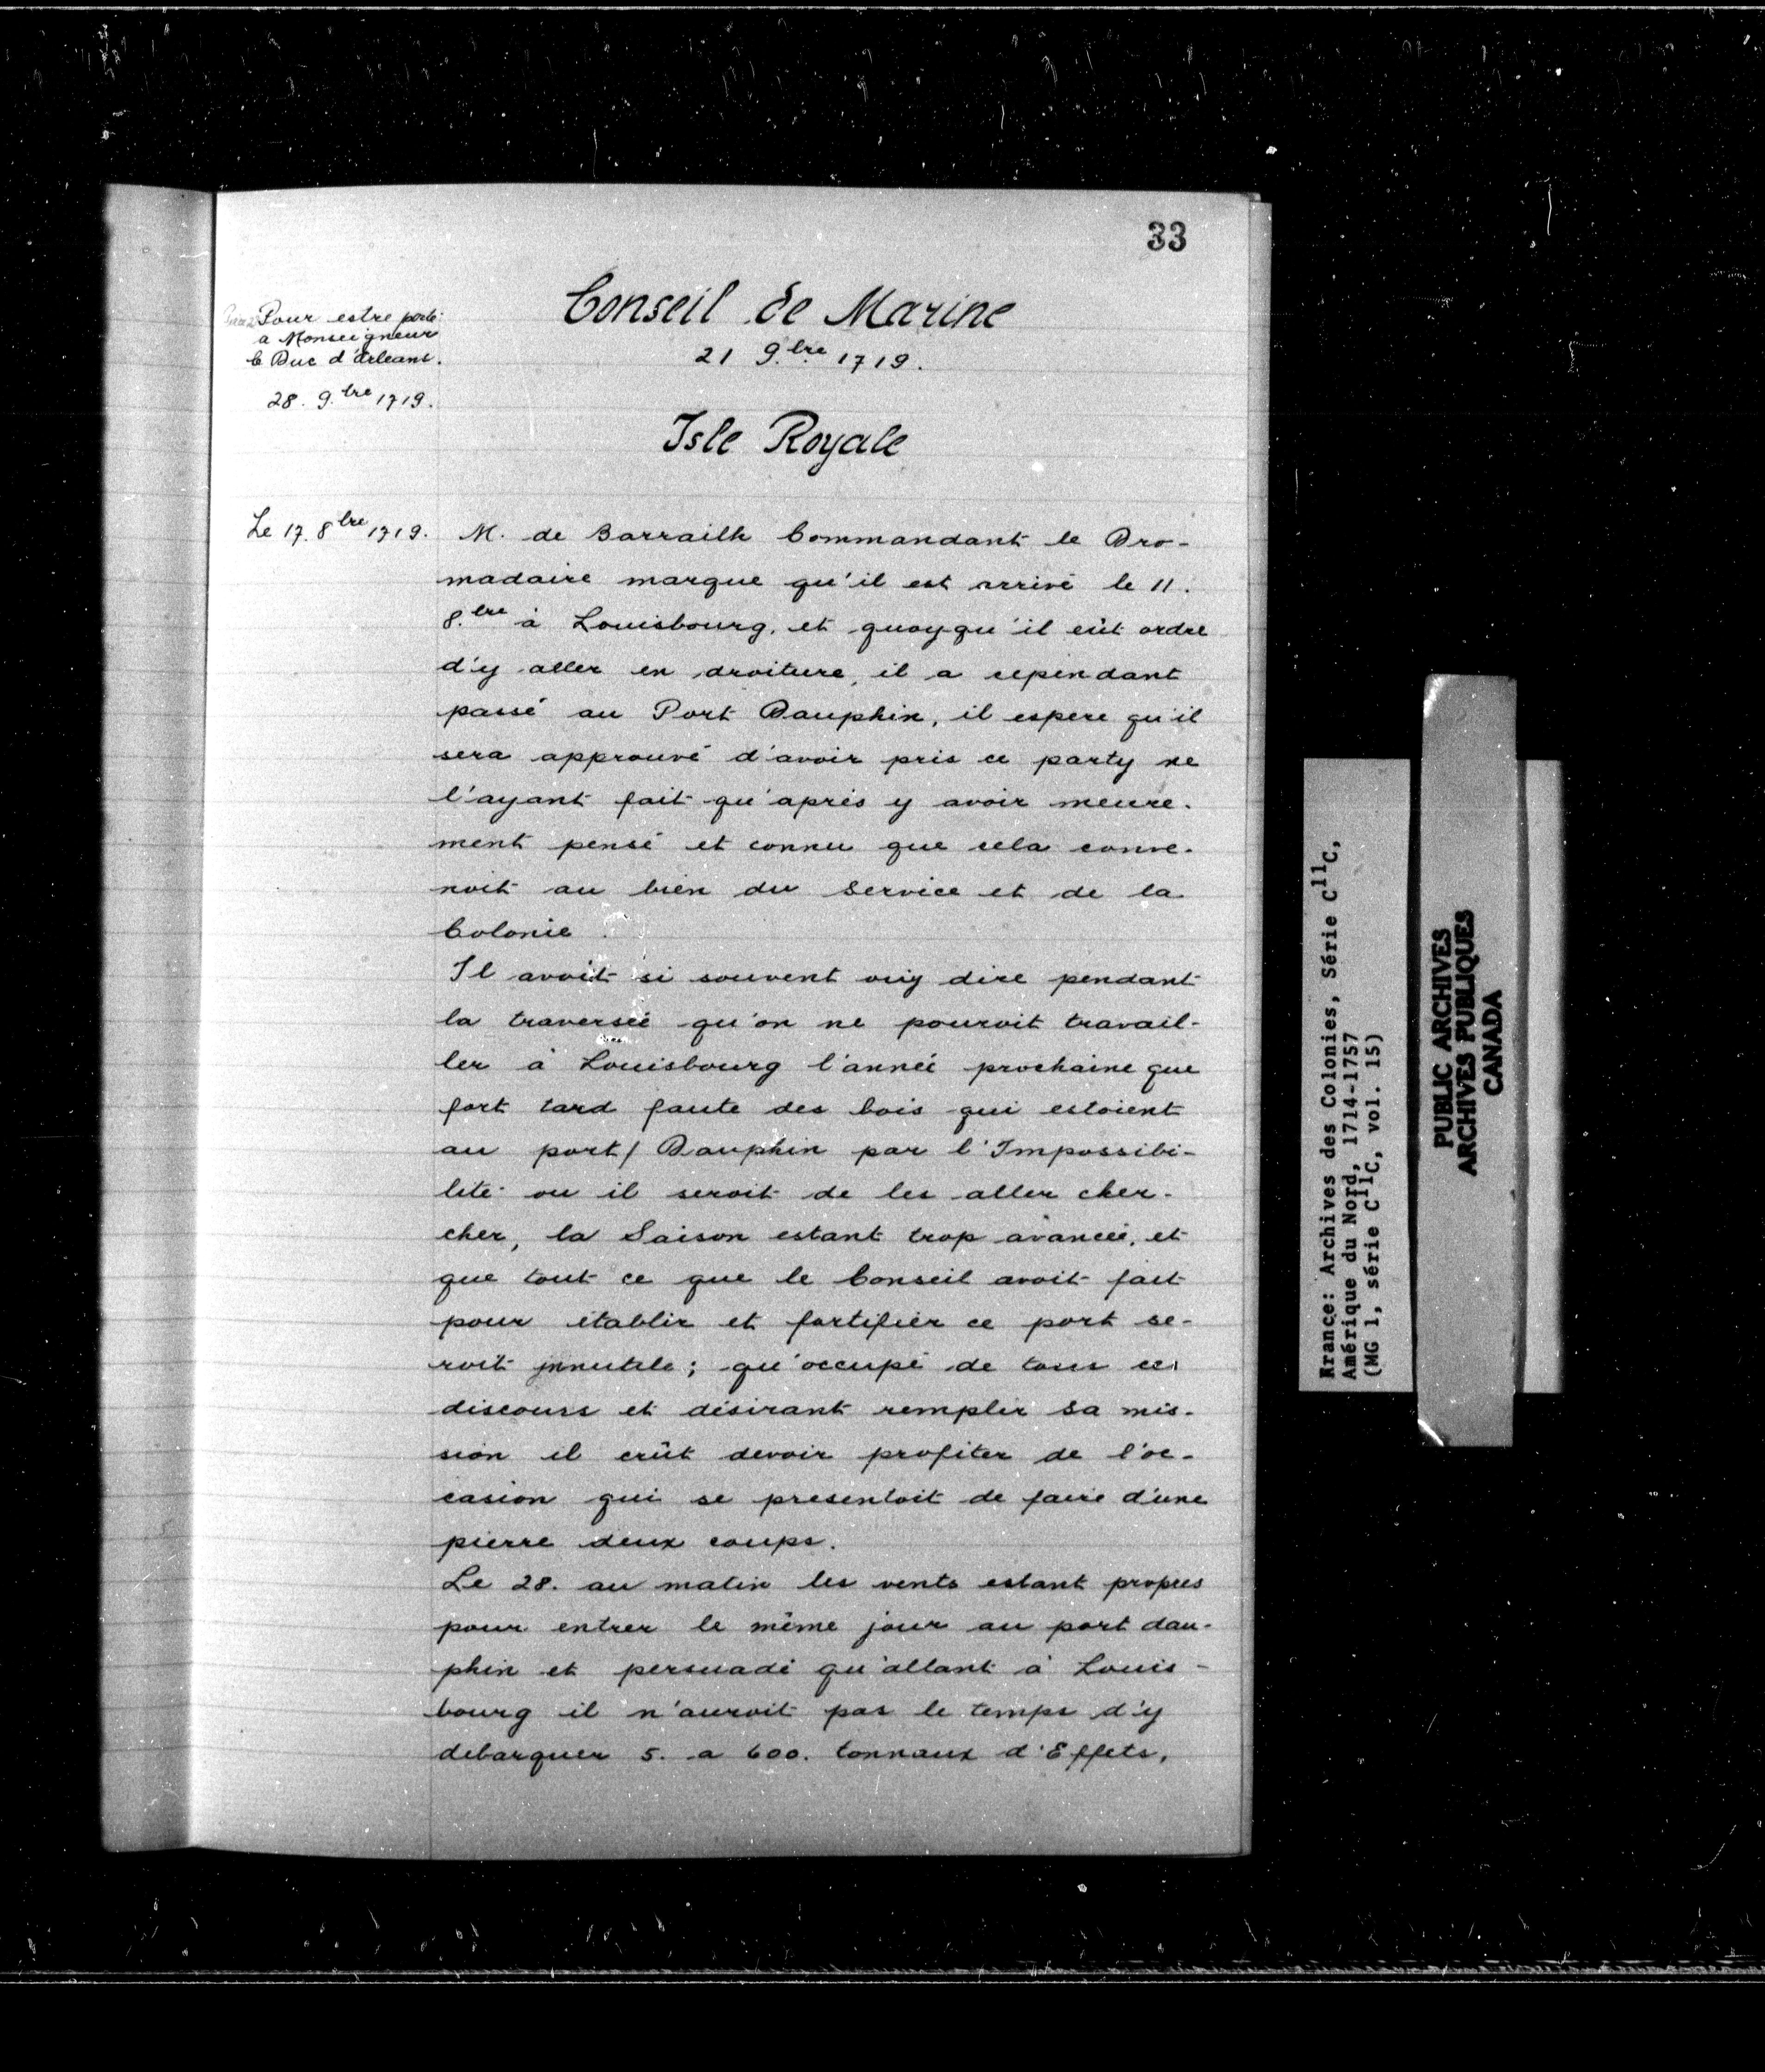 33
Conseil de Marine
21 9.bre 1719.
Pour estre porté
a Monseigneur
le Duc d'Orleans.
28. 9.bre 1719.
Isle Royale
Le 17. 8bre 1719.
M. de Barrailh Commandant le Dro-
madaire marque qu'il est arrivé le 11.
8.bre à Louisbourg, et quoyqu'il eût ordre
d'y aller en droiture, il a cependant
passé au Port Dauphin, il espere qu'il
sera approuvé d'avoir pris ce party ne
l'ayant fait qu'après y avoir meure-
ment pensé et connu que cela conve-
noit au bien du Service et de la
Colonie.
Il avoit si souvent ouy dire pendant
la traversée qu'on ne pouroit travail-
ler à Louisbourg l'année prochaine que
fort tard faute des bois qui estoient
au port/ Dauphin par l'Impossibi-
lité ou il seroit de les aller cher-
cher, la Saison estant trop avancée, et
que tout ce que le Conseil avoit fait
pour établir et fortifier ce port se-
roit jnnutile; qu'occupé de tous ces
discours et désirant remplir sa mis-
sion il crût devoir profiter de l'oc-
casion qui se presentoit de faire d'une
pierre deux coups.
Le 28. au matin les vents estant propres
pour entrer le même jour au port dau-
phin et persuadé qu'allant à Louis-
bourg il n'auroit pas le temps d'y
debarquer 5. a 600. tonnaux d'Effets,
Krance: Archives des Colonies, Série C11C,
Amérique du Nord, 1714-1757
(MG 1, série C11C, vol. 15)
PUBLIC ARCHIVES
ARCHIVES PUBLIQUES
CANADA